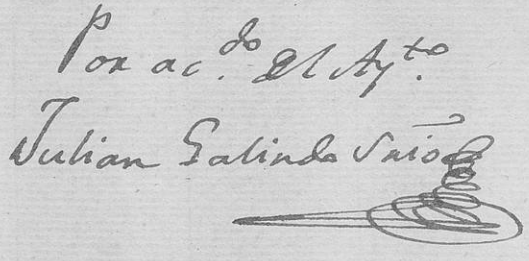 Por ac.do del Ay.to
Julian Galindo Srio